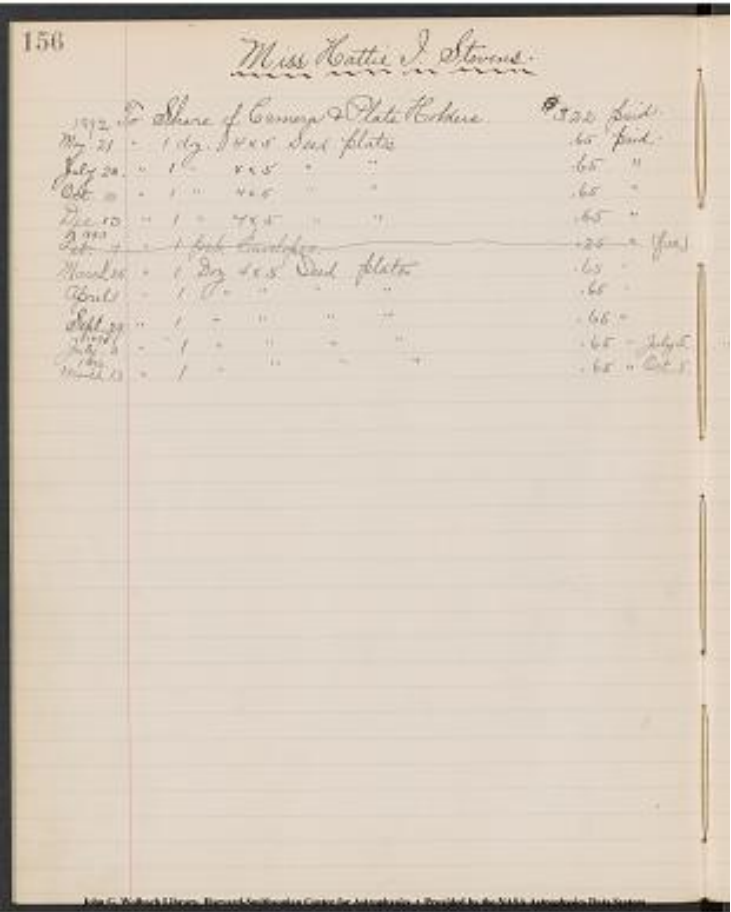 156
Miss Hattie I. Stevens.
1892 To Share of Camera & Plate Holders $3.22 paid.
May 21 " 1 dz. 4x5 Seed plates .65 paid.
July 20 " 1 " 4x5 " " .65 "
Oct " 1 " 4x5 " " .65 "
Dec 13 " 1 " 4x5 " " .65 "
1893
Feb. 1 .25 "
March " 1 Doz 4x5 Seed plates .65 "
April " 1 " " " " .65 "
Sept. 29 " 1 " " " " .65 "
July 3 " 1 " " " " .65 " July 5
March 13 " 1 " " " " .65 " Oct. 5
John G. Wolbach Library, Harvard-Smithsonian Center for Astrophysics • Provided by the NASA Astrophysics Data System